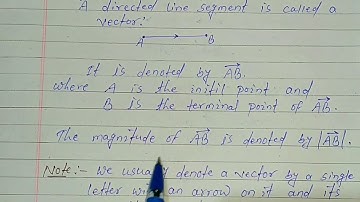 A directed line segment is called a
vector:-
A B
It is denoted by \overrightarrow{AB}.
where A is the initil point and
B is the terminal point of \overrightarrow{AB}.
The magnitude of \overrightarrow{AB} is denoted by |\overrightarrow{AB}|.
Note:- We usually denote a vector by a single
letter with an arrow on it and its